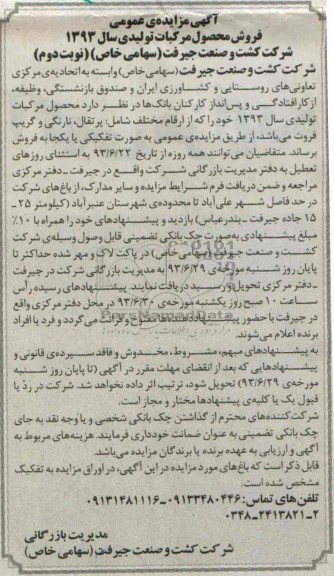 آگهی مزایده‌ی عمومی
فروش محصول مرکبات تولیدی سال ۱۳۹۳
شرکت کشت و صنعت جیرفت (سهامی خاص) (نوبت دوم)
شرکت کشت و صنعت جیرفت (سهامی خاص) وابسته به اتحادیه‌ی مرکزی
تعاونی‌های روستایی و کشاورزی ایران و صندوق بازنشستگی، وظیفه،
از کارافتادگی و پس‌انداز کارکنان بانک‌ها در نظر دارد محصول مرکبات
تولیدی سال ۱۳۹۳ خود را که از ارقام مختلف شامل: پرتقال، نارنگی و گریپ
فروت می‌باشد، از طریق مزایده‌ی عمومی به صورت تفکیکی یا یکجا به فروش
برساند. متقاضیان می‌توانند همه روزه از تاریخ ۹۳/۶/۲۲ به استثنای روزهای
تعطیل به دفتر مدیریت بازرگانی شرکت واقع در جیرفت ـ دفتر مرکزی
مراجعه و ضمن دریافت فرم شرایط مزایده و سایر مدارک، از باغ‌های شرکت
در حد فاصل شهر علی‌آباد تا محدوده‌ی شهرستان عنبرآباد (کیلومتر ۲۵ ـ
۱۵ جاده جیرفت ـ بندرعباس) بازدید و پیشنهادهای خود را همراه با ۱۰٪
مبلغ پیشنهادی به‌صورت چک بانکی تضمینی قابل وصول وسیله‌ی شرکت
کشت و صنعت جیرفت (سهامی خاص) در پاکت لاک و مهر شده حداکثر تا
پایان روز شنبه مورخه‌ی ۹۳/۶/۲۹ به مدیریت بازرگانی شرکت در جیرفت
ـ دفتر مرکزی تحویل و رسید دریافت نمایند. پیشنهادهای رسیده رأس
ساعت ۱۰ صبح روز یکشنبه مورخه‌ی ۹۳/۶/۳۰ در محل دفتر مرکزی واقع
در جیرفت با حضور پیشنهاددهنده‌ها مفتوح و قرائت می‌گردد و فرد یا افراد
برنده اعلام می‌شوند.
به پیشنهادهای مبهم، مشروط، مخدوش و فاقد سپرده‌ی قانونی و
پیشنهادهایی که بعد از انقضای مهلت مقرر در آگهی (تا پایان روز شنبه
مورخه‌ی ۹۳/۶/۲۹) تحویل شود، ترتیب اثر داده نخواهد شد. شرکت در ردّ یا
قبول یک یا کلیه‌ی پیشنهادها مختار و مجاز است.
شرکت کننده‌های محترم از گذاشتن چک بانکی شخصی و یا وجه نقد به جای
چک بانکی تضمینی به عنوان ضمانت خودداری فرمایند. هزینه‌های مربوط به
آگهی و ارزیابی به عهده برنده یا برندگان مزایده می‌باشد.
قابل ذکر است که باغ‌های مورد مزایده در این آگهی، در اوراق مزایده به تفکیک
مشخص شده است.
تلفن‌های تماس: ۰۹۱۳۳۴۸۰۴۴۶-۰۹۱۳۱۴۸۱۱۱۶
۰۳۴۸-۲۴۱۳۸۲۱-۲
مدیریت بازرگانی
شرکت کشت و صنعت جیرفت (سهامی خاص)